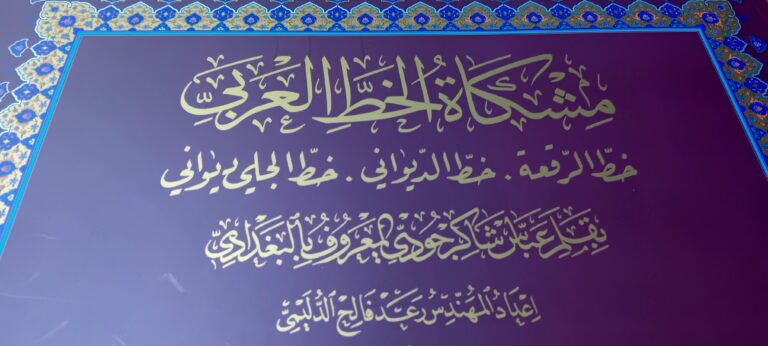 مِشْكَاةُ الخَطِّ العَرَبِيِّ
خطّ الرّقعة . خطّ الدّيواني . خطّ الجلي ديواني
بِقَلَمِ عَبَّاس شَاكِر جُودِي المَعْرُوفُ بِالبَغْدَادِيّ
إِعْدَادُ المُهَنْدِسِ رَعَد فَالِحِ الدُّلَيْمِيّ